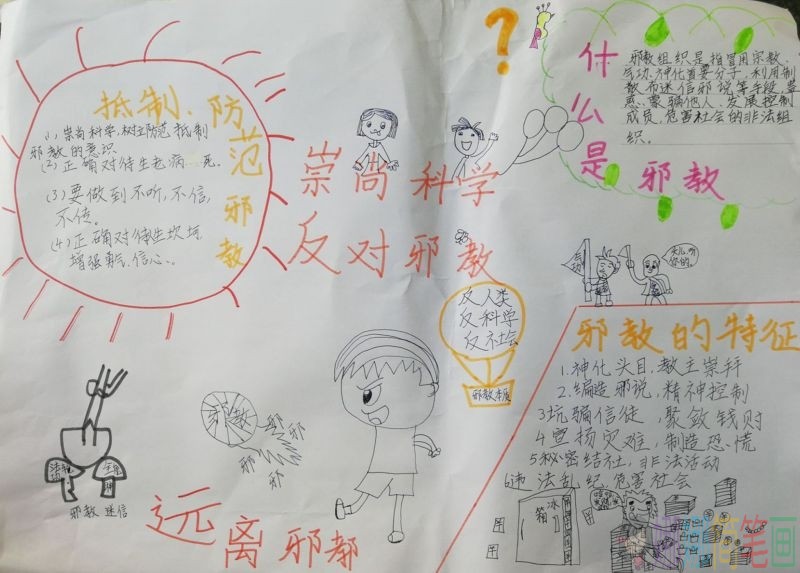 抵制、防范邪教
(1)崇尚科学,树立防范抵制
邪教的意识
(2)正确对待生老病死。
(3)要做到不听,不信,
不传。
(4)正确对待生坎坷
增强勇气、信心、。
?
崇尚科学
反对邪教
什么是邪教
邪教组织是指冒用宗教、
气功、神化首要分子,利用制
散布迷信邪说等手段,蛊
惑、蒙骗他人,发展控制
成员,危害社会的非法组
织。
气功
头儿,听
你的。
反人类
反科学
反社会
邪教本质
邪教的特征
1.神化头目,教主崇拜
2.编造邪说,精神控制
3坑骗信徒,聚敛钱财
4宣扬灾难,制造恐慌
5秘密结社,非法活动
6违法乱纪,危害社会
冰箱
邪教
邪
邪
邪
邪
邪教迷信
远离邪教